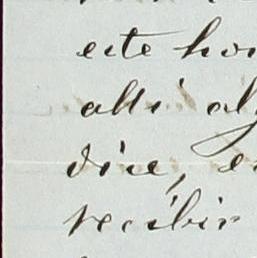 este ho
alli al
dice, e
recibir